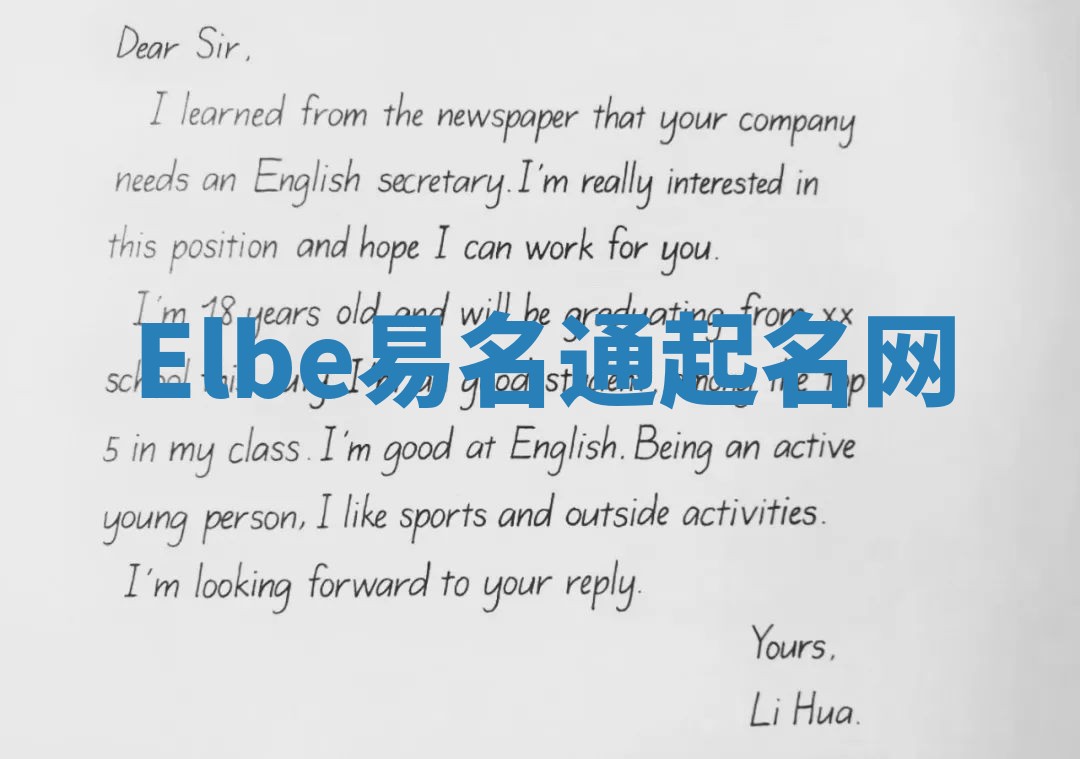 Dear Sir,
I learned from the newspaper that your company
needs an English secretary. I'm really interested in
this position and hope I can work for you.
I'm 18 years old and will be graduating from xx
Elbe易名通起名网
school this July. I'm a good student among the top
5 in my class. I'm good at English. Being an active
young person, I like sports and outside activities.
I'm looking forward to your reply.
Yours,
Li Hua.